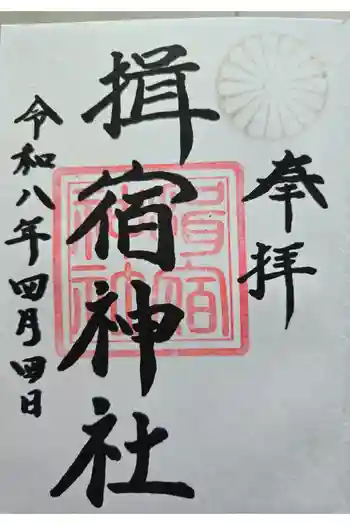 奉拝
揖宿神社
揖宿神社
令和八年四月四日